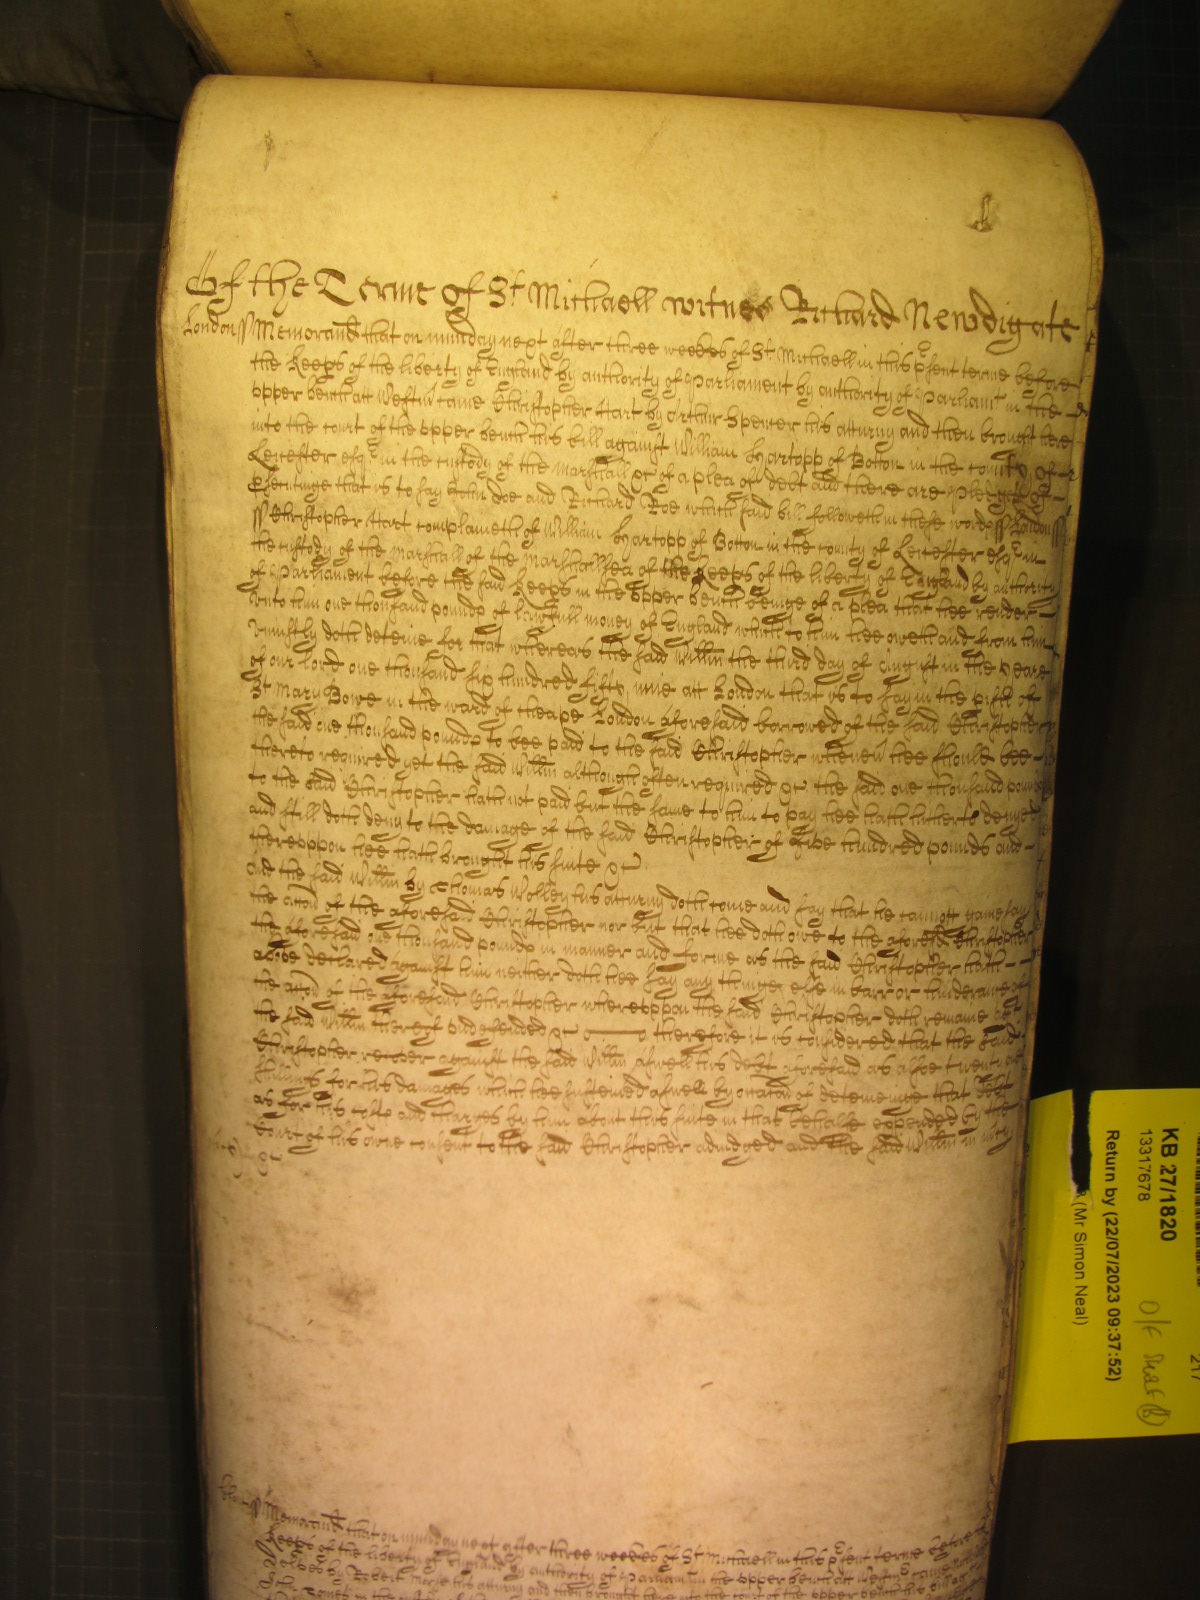 Of the Terme of St Michaell witnes Richard Newdigate
London ss Memorand that on munday next after three weekes of St Michaell in this psent terme before
the Keeps of the liberty of England by authority of Parliament by authority of Parliamt in the
vpper bench att Westmr came Christopher Hart by Arthur Spencer his atturny and then brought here
into the court of the vpper bench his bill against William Hartopp of Botton in the county of
Leicester esqr in the custody of the marshall &c of a plea of debt and there are pledges of
psecutinge that is to say John Doe and Richard Roe which said bill followeth in these words ss London ss
ss Christopher Hart complaineth of William Hartopp of Botton in the county of Leicester esqr in
the custody of the Marshall of the Marshallsea of the Keeps of the liberty of England by authority
of Parliament before the said Keeps in the vpper bench beinge of a plea that hee render
vnto him one thousand pounds of lawfull money of England which to him hee oweth and from him
vniustly doth deteine for that whereas the said Willm the third day of August in the yeare
of our Lord one thousand six hundred fifty nine att London that is to say in the pish of
St Mary Bowe in the ward of Cheape London aforesaid borrowed of the said Christopher
the said one thousand pounds to bee paid to the said Christopher whenev hee should bee
thereto required yet the said Willm although often required &c the said one thousand pounds
to the said Christopher hath not paid but the same to him to pay hee hath hitherto denyed
and still doth deny to the damage of the said Christopher of five hundred pounds and
therevppon hee hath brought this suite &c
And the said Willm by Thomas Wolley his atturny doth come and say that he cannott gainesay
the accon of the aforesaid Christopher nor but that hee doth owe to the aforesd Christopher
the aforesaid one thousand pounds in manner and forme as the said Christopher hath
above declared against him neither doth hee say any thinge else in barr or hinderance of
the accon of the aforesaid Christopher wherevppon the said Christopher doth remaine agt
the said Willm thereof vndefended &c therefore it is considered that the said
Christopher recover against the said Willm aswell his debt aforesaid as alsoe twenty
shillings for his damages which hee susteined aswell by occation of deteininge that debt
as for his costs and charges by him about his suite in that behalfe expended by the
Court of his owne consent to the said Christopher adiudged and the said Willm in mcy
&c
ss Memorand that on munday next after three weekes of St Michaell in this psent terme before
Keeps of the liberty of England by authority of Parliam in the vpper bench att Westmr came
by Robert his atturny and then brought here into the court of the vpper bench his bill
KB 27/1820
13317678
Return by (22/07/2023 09:37:52)
(Mr Simon Neal)
217